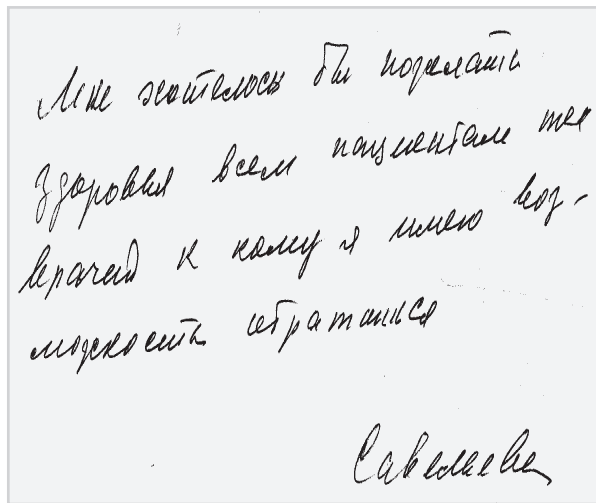 Мне хотелось бы пожелать
здоровья всем пациентам тех
врачей к кому я имею воз-
можность обратиться
Савельева